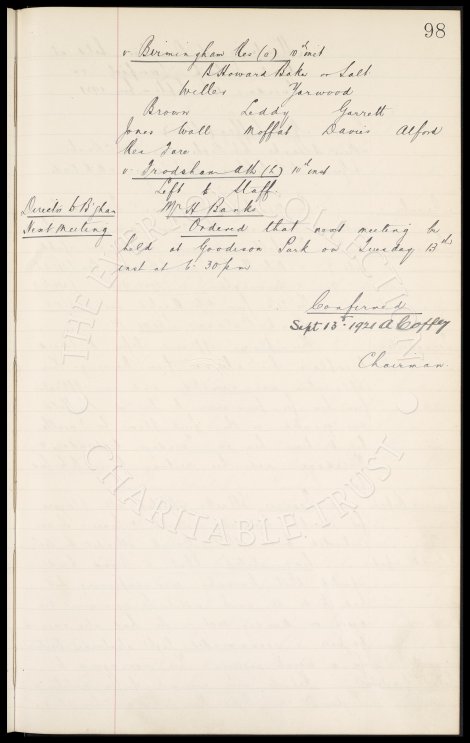 98
v Birmingham Res (a) 10th inst
B Howard Baker or Salt
Willis Yarwood
Brown Leddy Garrett
Jones Wall Moffat Davis Alford
Res
v Frodsham Ath (h) 10th inst
Left to Staff.
Director to B'ham Mr H Banks
Next Meeting Ordered that next meeting be
held at Goodison Park on Tuesday 13th
inst at 6.30 pm
Confirmed
Sept 13th 1921 A Coffey
Chairman.
THE EVERTON COLLECTION
CHARITABLE TRUST